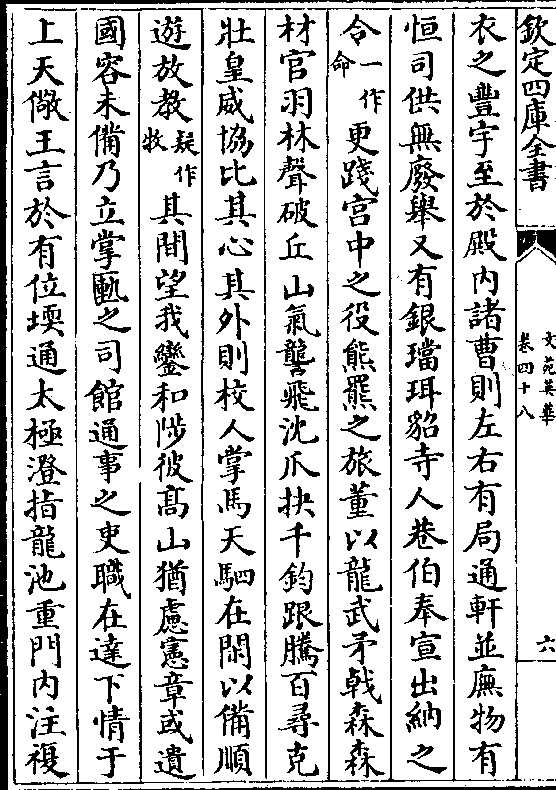 欽定四庫全書
文苑英華
卷四十八
六
衣之豐宇至於殿內諸曹則左右有局通軒並廡物有
恒司供無廢舉又有銀璫珥貂寺人巷伯奉宣出納之
令一作命更踐宮中之役熊羆之旅董以龍武矛戟森森
材官羽林聲破丘山氣讋飛沈爪抉千鈞跟騰百尋克
壯皇威協比其心其外則校人掌馬天駟在閑以備順
遊放教疑作牧其間望我鑾和陟彼髙山猶慮憲章或遺
國容未備乃立掌匭之司館通事之吏職在達下情于
上天儆王言於有位堧通太極澄指龍池重門內注複